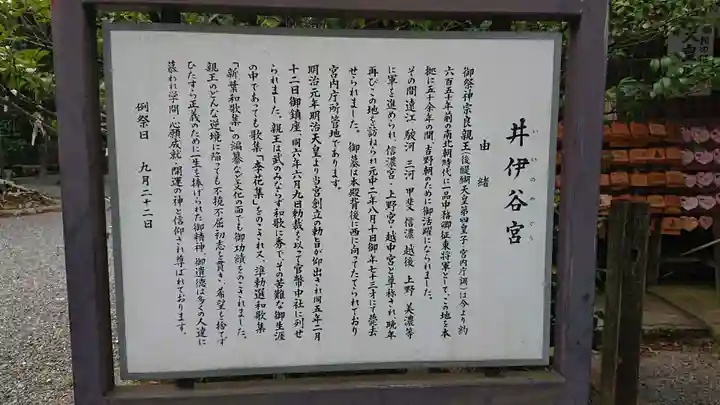 井伊谷宮
いいのやぐう
由緒
御祭神宗良親王(後醍醐天皇第四皇子・宮内庁調)は今より約
六百五十年前の南北朝時代に一品中務卿征東将軍として、この地を本
拠に五十余年の間、吉野朝のために御活躍になられました。
その間遠江 駿河 三河 甲斐 信濃 越後 上野 美濃等
に軍を進められ、信濃宮・上野宮・越中宮と尊称され、晩年
再びこの地を訪ねられ元中二年八月十日御年七十三才にて薨去
せられました。御墓は本殿背後に西に向ってたてられており
宮内庁所管地であります。
明治元年明治天皇より当宮創立の勅旨が仰出され同五年二月
十二日御鎮座、同六年六月九日勅裁を以って官幣中社に列せ
られました。親王は武のみならず和歌に秀で、その苦難な御生涯
の中であっても歌集「李花集」をのこされ又、準勅選和歌集
「新葉和歌集」の編纂など文化の面でも御功績をのこされました。
親王のどんな逆境に陥っても不撓不屈初志を貫き、希望も捨てず
ひたすら正義のために一生を捧げられた御精神、御遺徳は多くの人達に
慕われ学問・心願成就・開運の神と信仰され尊ばれております。
例祭日 九月二十二日